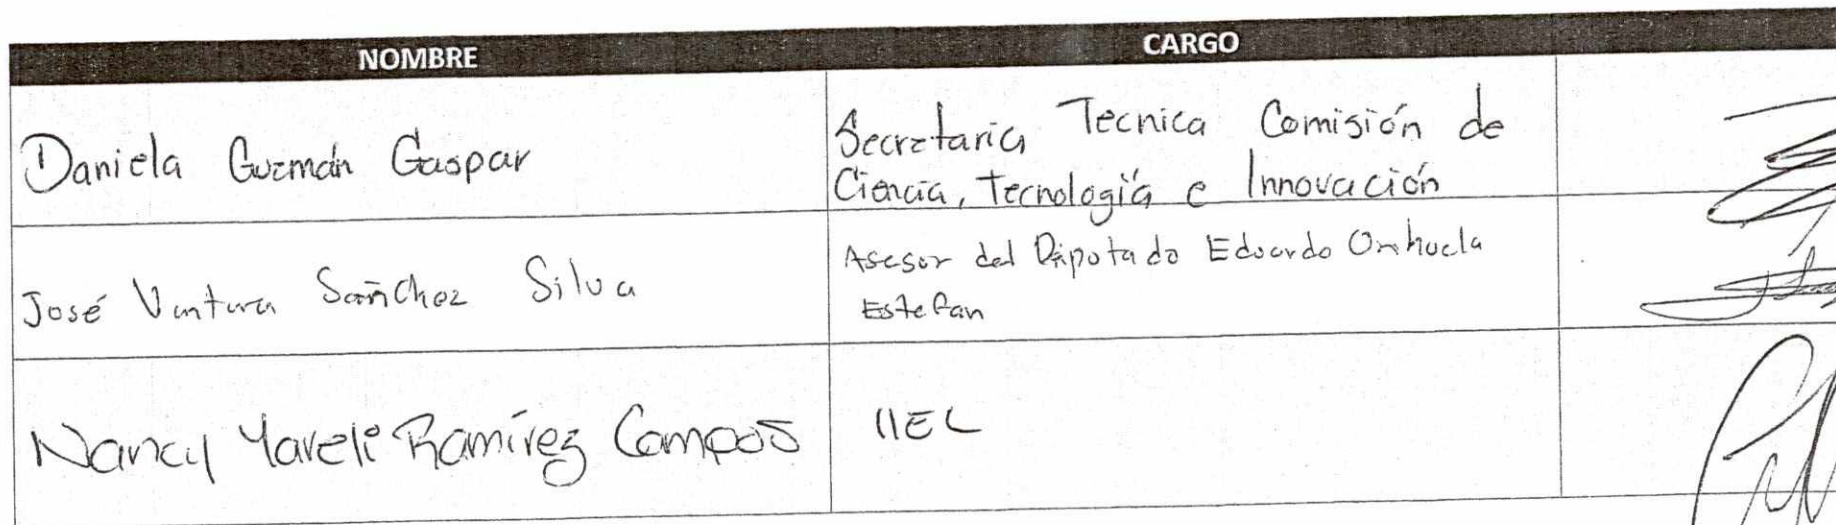 NOMBRE CARGO
Daniela Guzmán Gaspar
Secretaria Tecnica Comisión de
Ciencia, Tecnología e Innovación
José Ventura Sánchez Silva
Asesor del Diputado Eduardo Orihuela
Estefan
Nancy Yareli Ramírez Campos
IIEL